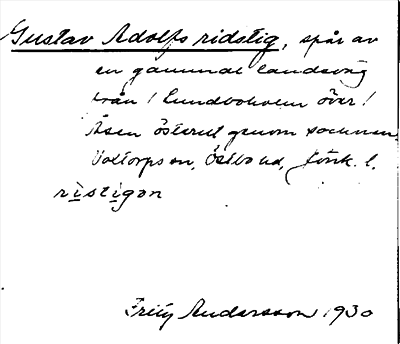 Gustav Adolfs ridstig, spår av
en gammal landsväg
från! Lundboholm över!
Åsen österut genom socknen.
Valtorps sn, Östbo hd, Jönk. l.
ristigən
Fritz Andersson 1930